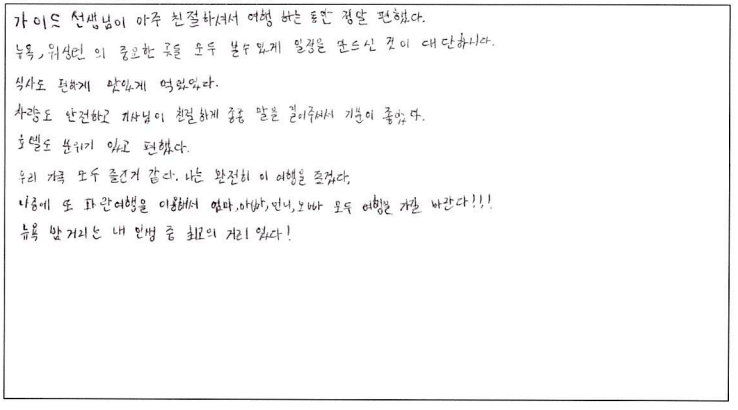 가이드 선생님이 아주 친절하셔서 여행 하는 동안 정말 편했다.
뉴욕, 워싱턴 의 중요한 곳을 모두 볼수 있게 일정을 만드신 것이 대단하시다.
식사도 편하게 맛있게 먹었었다.
차량도 안전하고 기사님이 친절하게 중종 말을 걸어주셔서 기분이 좋았다.
호텔도 분위기 있고 편했다.
우리 가족 모두 즐긴거 같다. 나는 완전히 이 여행을 즐겼다.
다음에 또 파란여행을 이용해서 엄마, 아빠, 언니, 오빠 모두 여행을 가길 바란다!!!
뉴욕 밤거리는 내 인생 중 최고의 거리 였다!